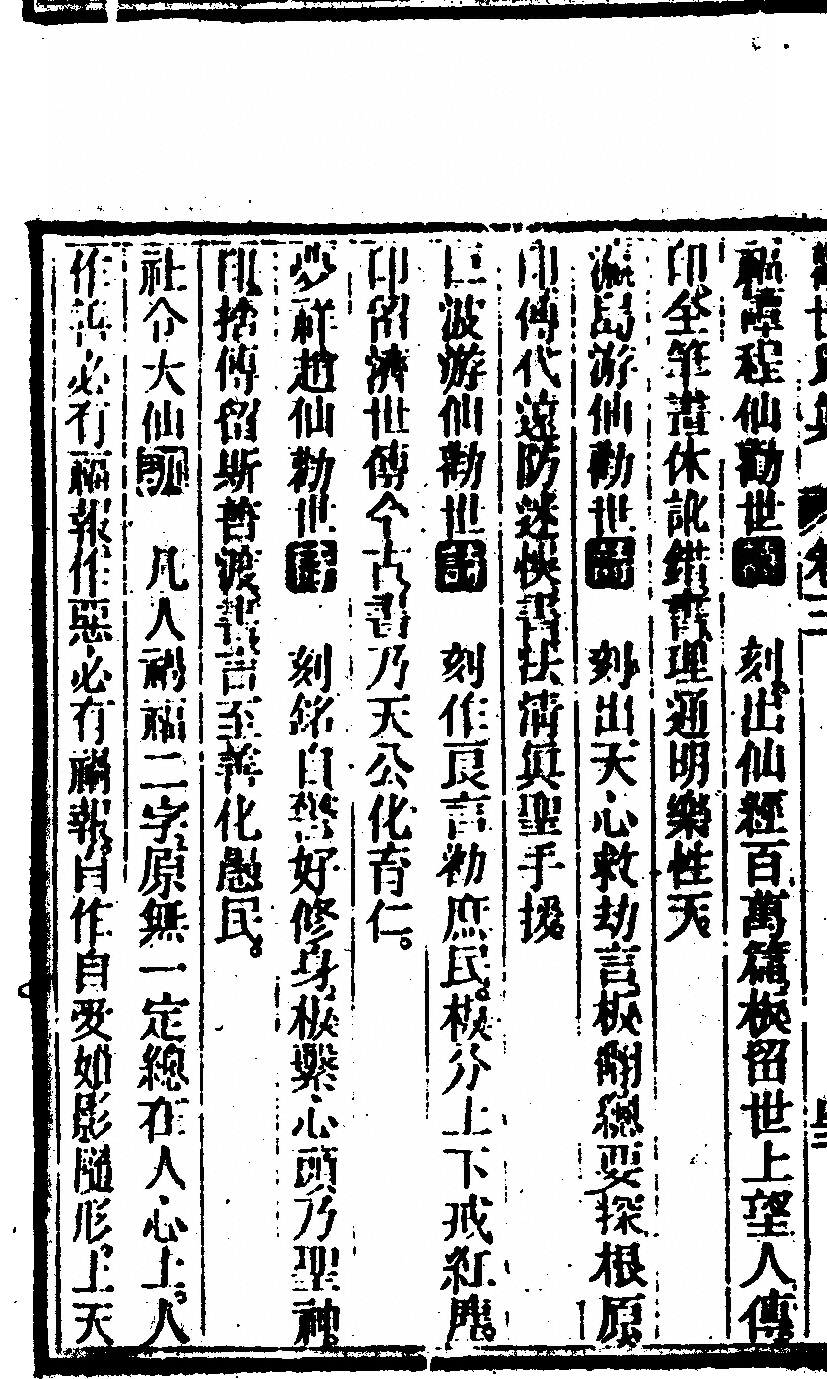 程仙勸世詩 刻出仙經百萬篇板留世上望人傳
印全筆畫休訛錯書理通明樂性天
瀛島游仙勸世詩 刻出天心救劫言板翻總要探根原
印傳代遠防迷悞書扶清真聖手援
波游仙勸世詩 刻作良言勸庶民。板分上下戒紅塵。
印留濟世傳今古書乃天公化育仁。
夢祥趙仙勸世詩 刻銘自警好修身。板繫心頭乃聖神。
印捨傳留斯普渡書言至善化愚民。
社令大仙 凡人禍福二字。原無一定總在人心上。人
作善必有福報作惡必有禍報。自作自受如影隨形。上天